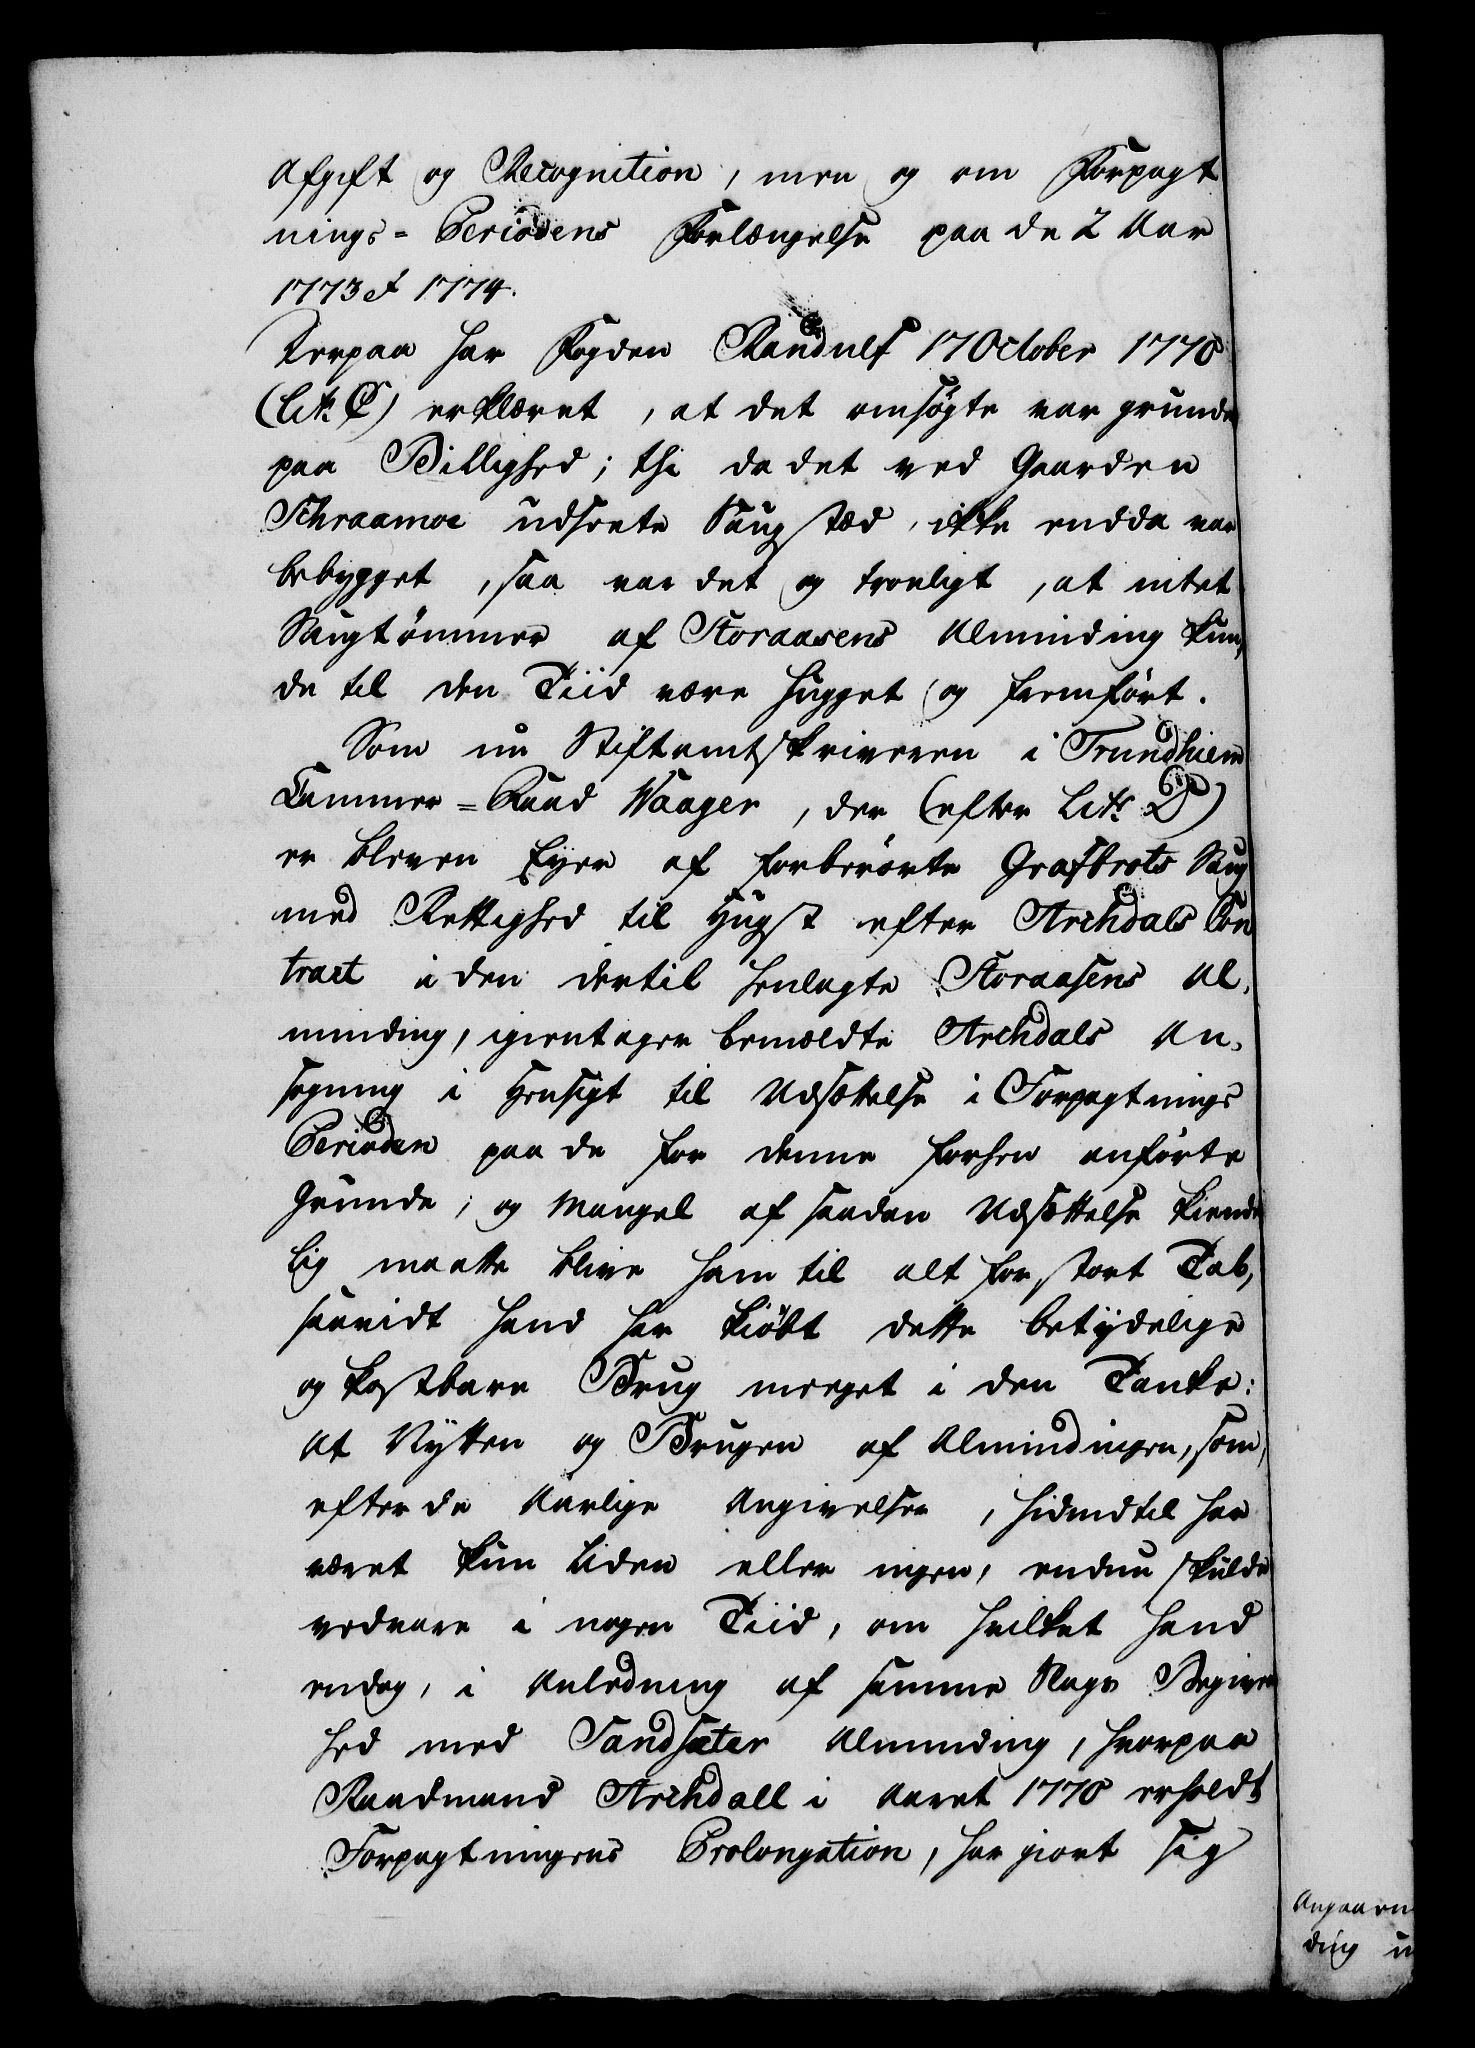 Afgift og Recognition, men og om Forpagt
nings-Periodens Forlængelse paa de 2 Aar
1773 et 1774.
Derpaa har Fogden Randulf 17 October 1770
(Litr. C) erklæret, at det ansøgte var grundet
paa Billighed; thi da det ved Gaarden
Schraamoe udseete Saugstæd, ikke endda var
bebygget, saa var det og troeligt, at intet
Saugtømmer af Storaasens Alminding kun,
de til den Tiid være hugget og fremført.
Som nu Stiftamtskriveren i Trundhiem
Cammer-Raad Waager, der (efter Litr. D)
er bleven Eyer af forberørte Grafbrots Saug
med Rettighed til Hugst efter Archdals Con
tract i den dertil henlagte Storaasens Al,
minding, igientager bemældte Archdals An,
søgning i Hensigt til Udsættelse i Forpagtnings
Perioden paa de for denne forhen anførte
Grunde; og Mangel af saadan Udsættelse kiende
lig maatte blive ham til alt for stort Tab,
saavidt hand har kiøbt dette betydelige
og kostbare Brug meeget i den Tanke:
At Nytten og Brugen af Almindingen, som,
efter de Aarlige Angivelser, hidindtil har
været kun liden eller ingen, endnu skulde
vedvare i nogen Tiid, om hvilket hand
endog, i Anledning af samme Slags Begiven
hed med Sandsæter Alminding, hvorpaa
Raadmand Archdall i Aaret 1770 erholdt
Forpagtningens Prolongation, har giort sig
Angaaen
ding i